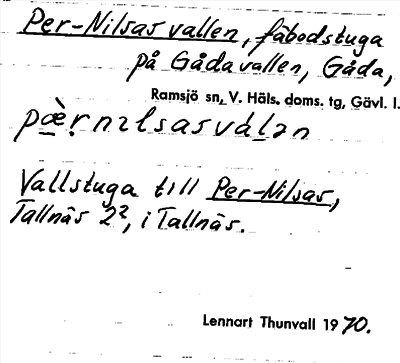 Per-Nilsas vallen, fäbodstuga
på Gådavallen, Gåda,
Ramsjö sn, V. Häls. doms. tg, Gävl. l.
pæ̀rnɩlsasválən
Vallstuga till Per-Nilsas,
Tallnäs 2², i Tallnäs.
Lennart Thunvall 1970.